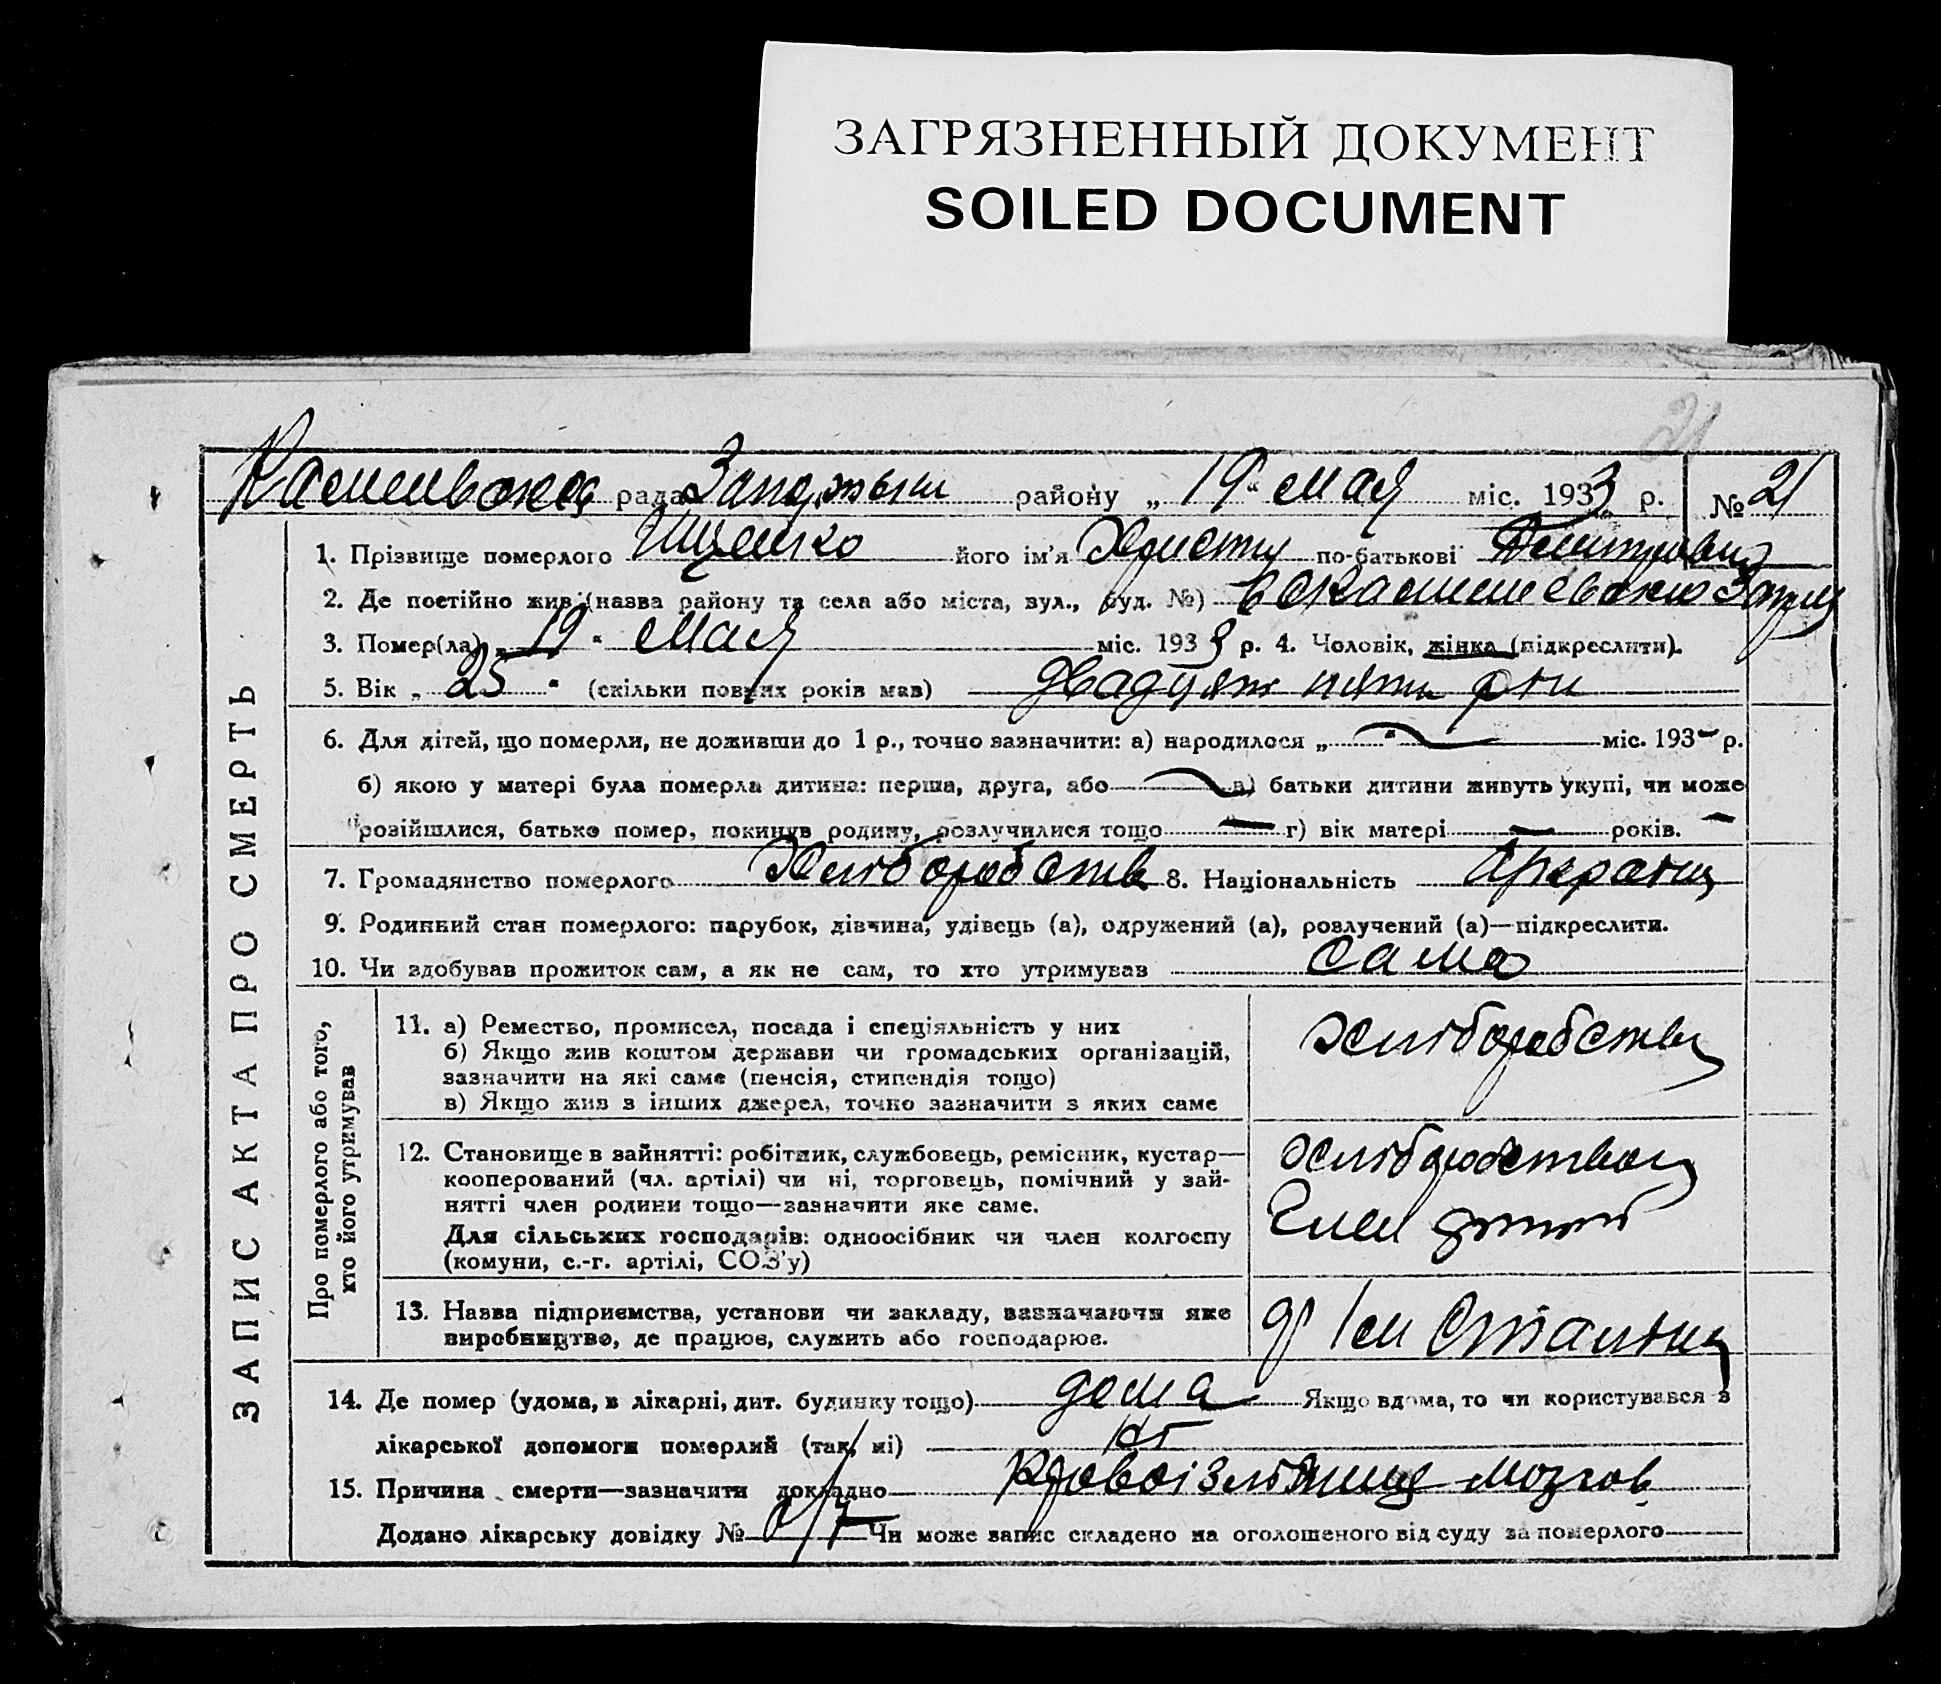 ЗАГРЯЗНЕННЫЙ ДОКУМЕНТ
SOILED DOCUMENT
21
рада району „ 19 " мая міс. 1933 р. № 21
1. Прізвище померлого Іщенко його ім'я Христя по-батькові
2. Де постійно жив (назва району та села або міста, вул., буд. №)
3. Помер(ла) „ 19 " мая міс. 1933 р. 4. Чоловік, жінка (підкреслити).
5. Вік „ 25 " (скільки повних років мав) двадцять пять
6. Для дітей, що померли, не доживши до 1 р., точно зазначити: а) народилося „ " міс. 193- р.
б) якою у матері була померла дитина: перша, друга, або в) батьки дитини живуть укупі, чи може
розійшлися, батько помер, покинув родину, розлучилися тощо — г) вік матері — років. —
7. Громадянство померлого Хлібороб 8. Національність
9. Родинний стан померлого: парубок, дівчина, удівець (а), одружений (а), розлучений (а)—підкреслити.
10. Чи здобував прожиток сам, а як не сам, то хто утримував сама
ЗАПИС АКТА ПРО СМЕРТЬ
Про померлого або того,
хто його утримував
11. а) Ремество, промисел, посада і спеціяльність у них
б) Якщо жив коштом держави чи громадських організацій,
зазначити на які саме (пенсія, стипендія тощо)
в) Якщо жив з інших джерел, точно зазначити з яких саме
12. Становище в зайнятті: робітник, службовець, ремісник, кустар—
кооперований (чл. артілі) чи ні, торговець, помічний у зай-
нятті член родини тощо—зазначити яке саме.
Для сільських господарів: одноосібник чи член колгоспу
(комуни, с.-г. артілі, СОЗ'у)
член
13. Назва підприємства, установи чи закладу, зазначаючи яке
виробництво, де працює, служить або господарює.
14. Де помер (удома, в лікарні, дит. будинку тощо) дома Якщо вдома, то чи користувався з
лікарської допомоги померлий (так, ні) ні
15. Причина смерти—зазначити докладно мозков
Додано лікарську довідку № Чи може запис складено на оголошеного від суду за померлого